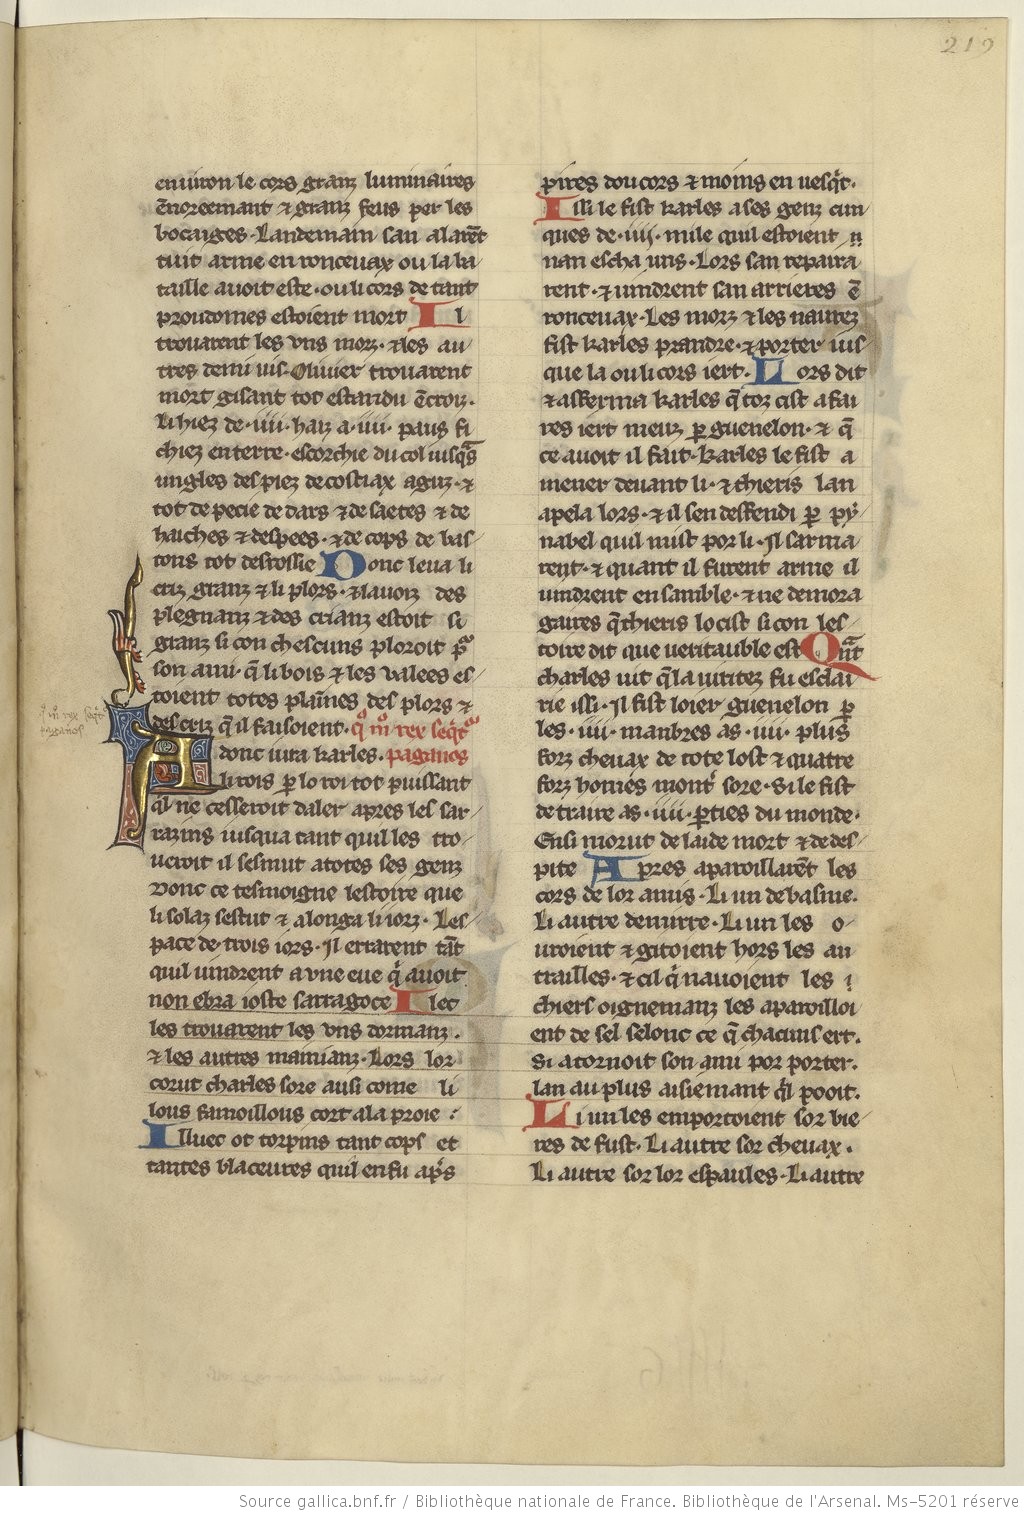 219
enuiron le cors granz luminaires
ẽnoreemant ⁊ granz feus per les
bocaiges· Landemain san alarẽt
tuit arme en ronceuax ou la ba
taille auoit este· ou li cors de tant
proudomes estoient mort Il
trouarent les vns morz· ⁊ les au
tres demi uis· Oliuier trouarent
mort gisant tot estandu ẽ croiz·
Li hiez de·iiii·harz a·iiii· paus fi
chiez en terre· escorchie du col iusq̃s
ungles des piez de costiax aguz·⁊
tot depecie de dars ⁊ de saietes ⁊ de
haiches ⁊ despees·⁊ de cops de bas
tons tot defrossie Donc leua li
criz granz ⁊ li plors·⁊ lauoiz des
plegnanz ⁊ des crianz estoit si
granz si con chescuns ploroit pᵃ
son ami· q̃ li bois ⁊ les valees es
toient totes plainnes des plors ⁊
des criz q̃ il faisoient· qͦ mͦ rex seqͥtᵃ
qͦ mͦ rex seqͥt
paganos
Adonc iura karles· paganos
li rois p̱ lo roi tot puissant
qͥl ne cesseroit daler apres les sar
razins iusqua tant quil les tro
ueroit il sesmut a totes ses genz
Donc ce tesmoigne lestoire que
li solaz sestut ⁊ alonga li iorz· Les
pace de trois iors· Il errarent tãt
quil uindrent a vne eue qͥ auoit
non ebra ioste sarragoce Ilec
les trouarent les vns dormanz·
⁊ les autres maniianz· Lors lor
corut charles sore ausi come li
lous famoillous cort a la proie·
Illuec ot torpins tant cops et
tantes blaceures quil en fu apͥs
pires dou cors ⁊ moins en uesqͥt·
Issi le fist karles a ses genz cun
ques de·iiij·mile quil estoient n
nan escha uns· Lors san repaira
rent·⁊ uindrent san arrieres ẽ
ronceuax· Les morz ⁊ les naurez
fist karles prandre·⁊ porter ius
que la ou li cors iert· Lors dit
⁊ afferma karles q̃ toz cist afai
res iert meuz p̱ guenelon·⁊ q̃
ce auoit il fait· karles le fist a
mener deuant li·⁊ thieris lan
apela lors·⁊ il sen deffendi p̱ py
nabel quil mist por li· Il sarma
rent·⁊ quant il furent arme il
uindrent ensamble·⁊ ne demora
gaires q̃ thieris locist si con les
toire dit que ueritauble est Qᵃnt
charles uit q̃ la uiritez fu esclai
rie issi· Il fist loier guenelon p̱
les·iiii·manbres as·iiii· plus
forz cheuax de tote lost ⁊ quatre
forz homes montͥ sore· Si le fist
de traire as·iiii·p̱ties du monde·
Ensi morut de laide mort ⁊ de des
pite Apres aparoillarẽt les
cors de lor amis· Li un de basme·
Li autre de mirre· Li un les o
uroient ⁊ gitoient hors les an
trailles·⁊ cil qͥ nauoient les
chiers oignemanz les aparoilloi
ent de sel selonc ce q̃ chacuns ert·
Si atornoit son ami por porter·
lan au plus aisiemant qͥl pooit·
Li un les emportoient sor bie
res de fust· Li autre sor cheuax·
Li autre sor lor espaules· Li autre
Source gallica.bnf.fr / Bibliothèque nationale de France. Bibliothèque de l'Arsenal. Ms-5201 réserve